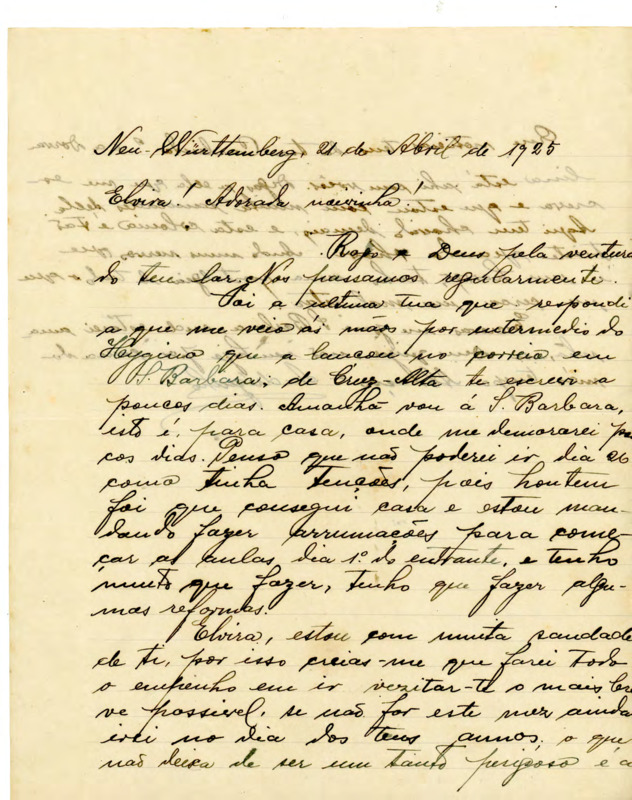 Neu-Württemberg, 21 de Abril de 1925
Elvira! Adorada noivinha!
Rogo a Deus pela ventura
do teu lar. Nos passamos regularmente.
Foi a ultima tua que respondi
a que me veio ás mãos por intermedio do
Hygino que a lançou no correio em
S. Barbara; de Cruz-Alta te escrevi a
poucos dias. Amanhã vou á S. Barbara,
isto é, para casa, onde me demorarei pou
cos dias. Penso que não poderei ir dia 26
como tinha tenções, pois hontem
foi que consegui casa e estou man-
dando fazer arrumações para come-
çar as aulas dia 1º do entrante, e tenho
muito que fazer, tenho que fazer algu-
mas reformas.
Elvira, estou com muita saudade
de ti, por isso creias-me que farei todo
o empenho em ir vezitar-te o mais bre
ve possivel, se não for este mez ainda
irei no dia dos teus annos; o que
não deixa de ser um tanto perigoso é a